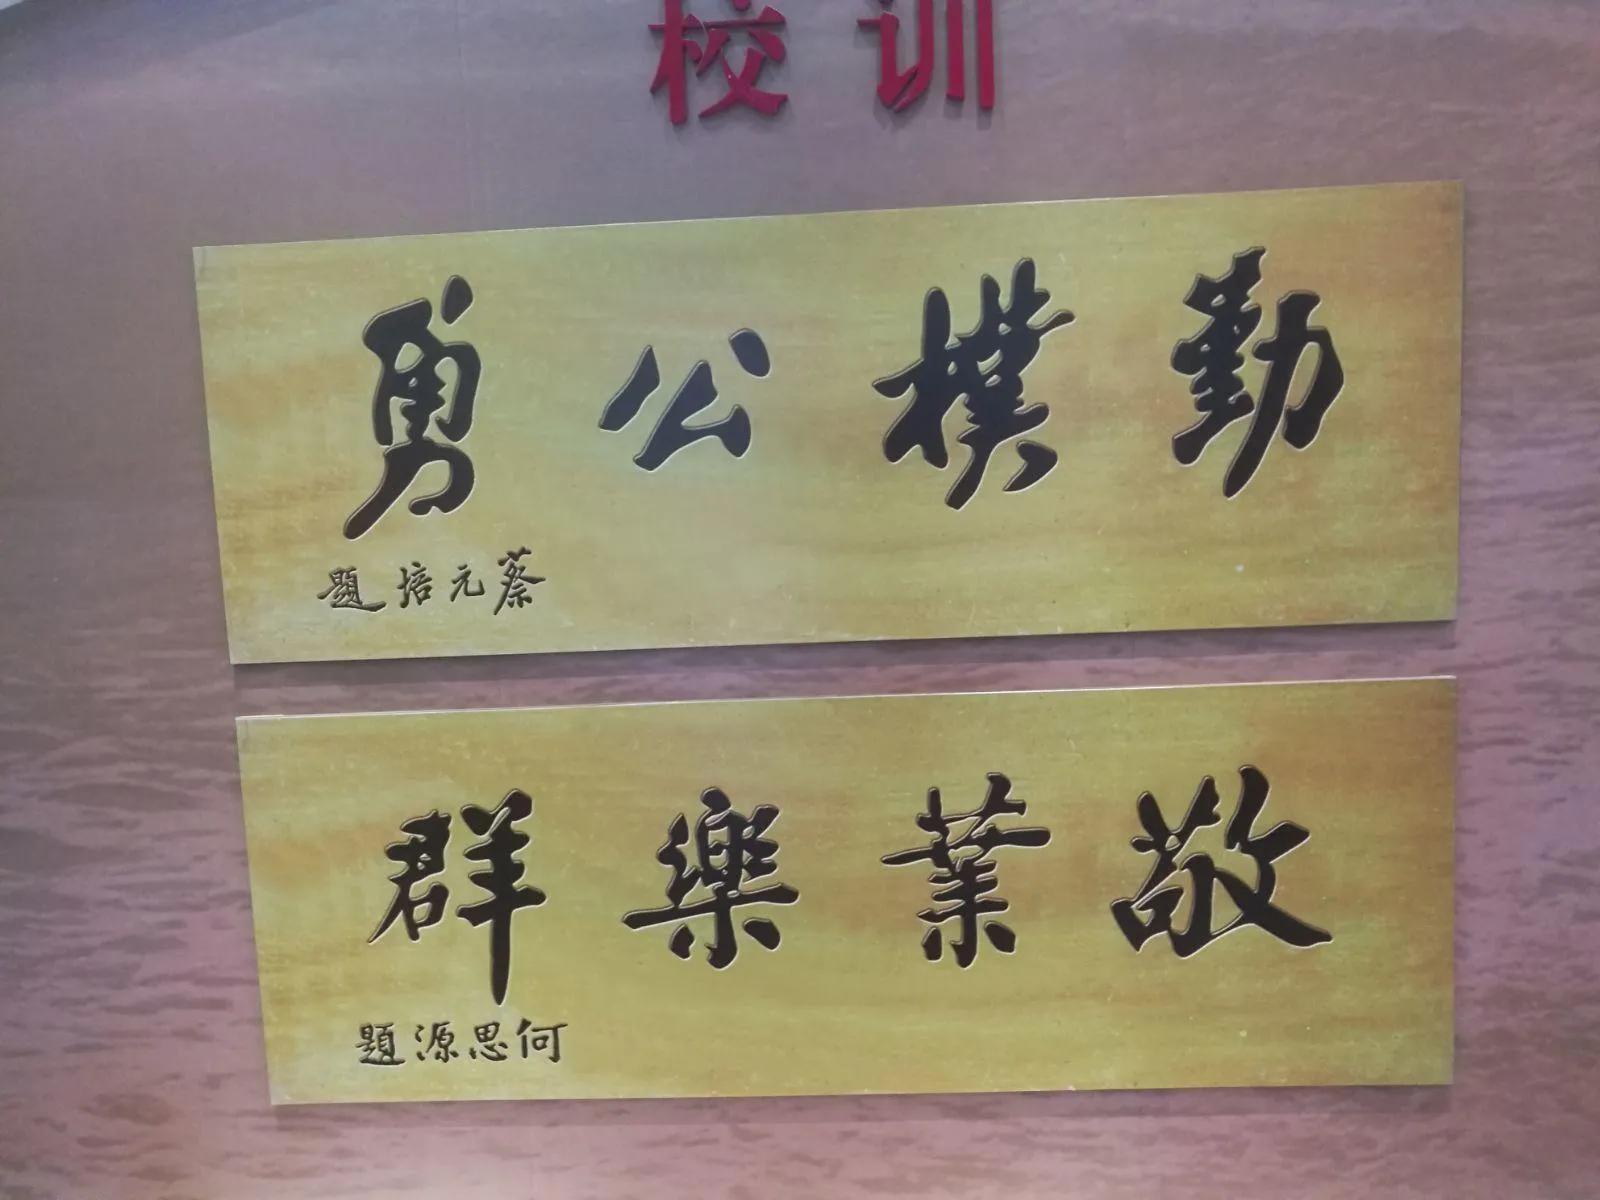 校训
勤樸公勇
蔡元培題
敬業樂群
何思源題